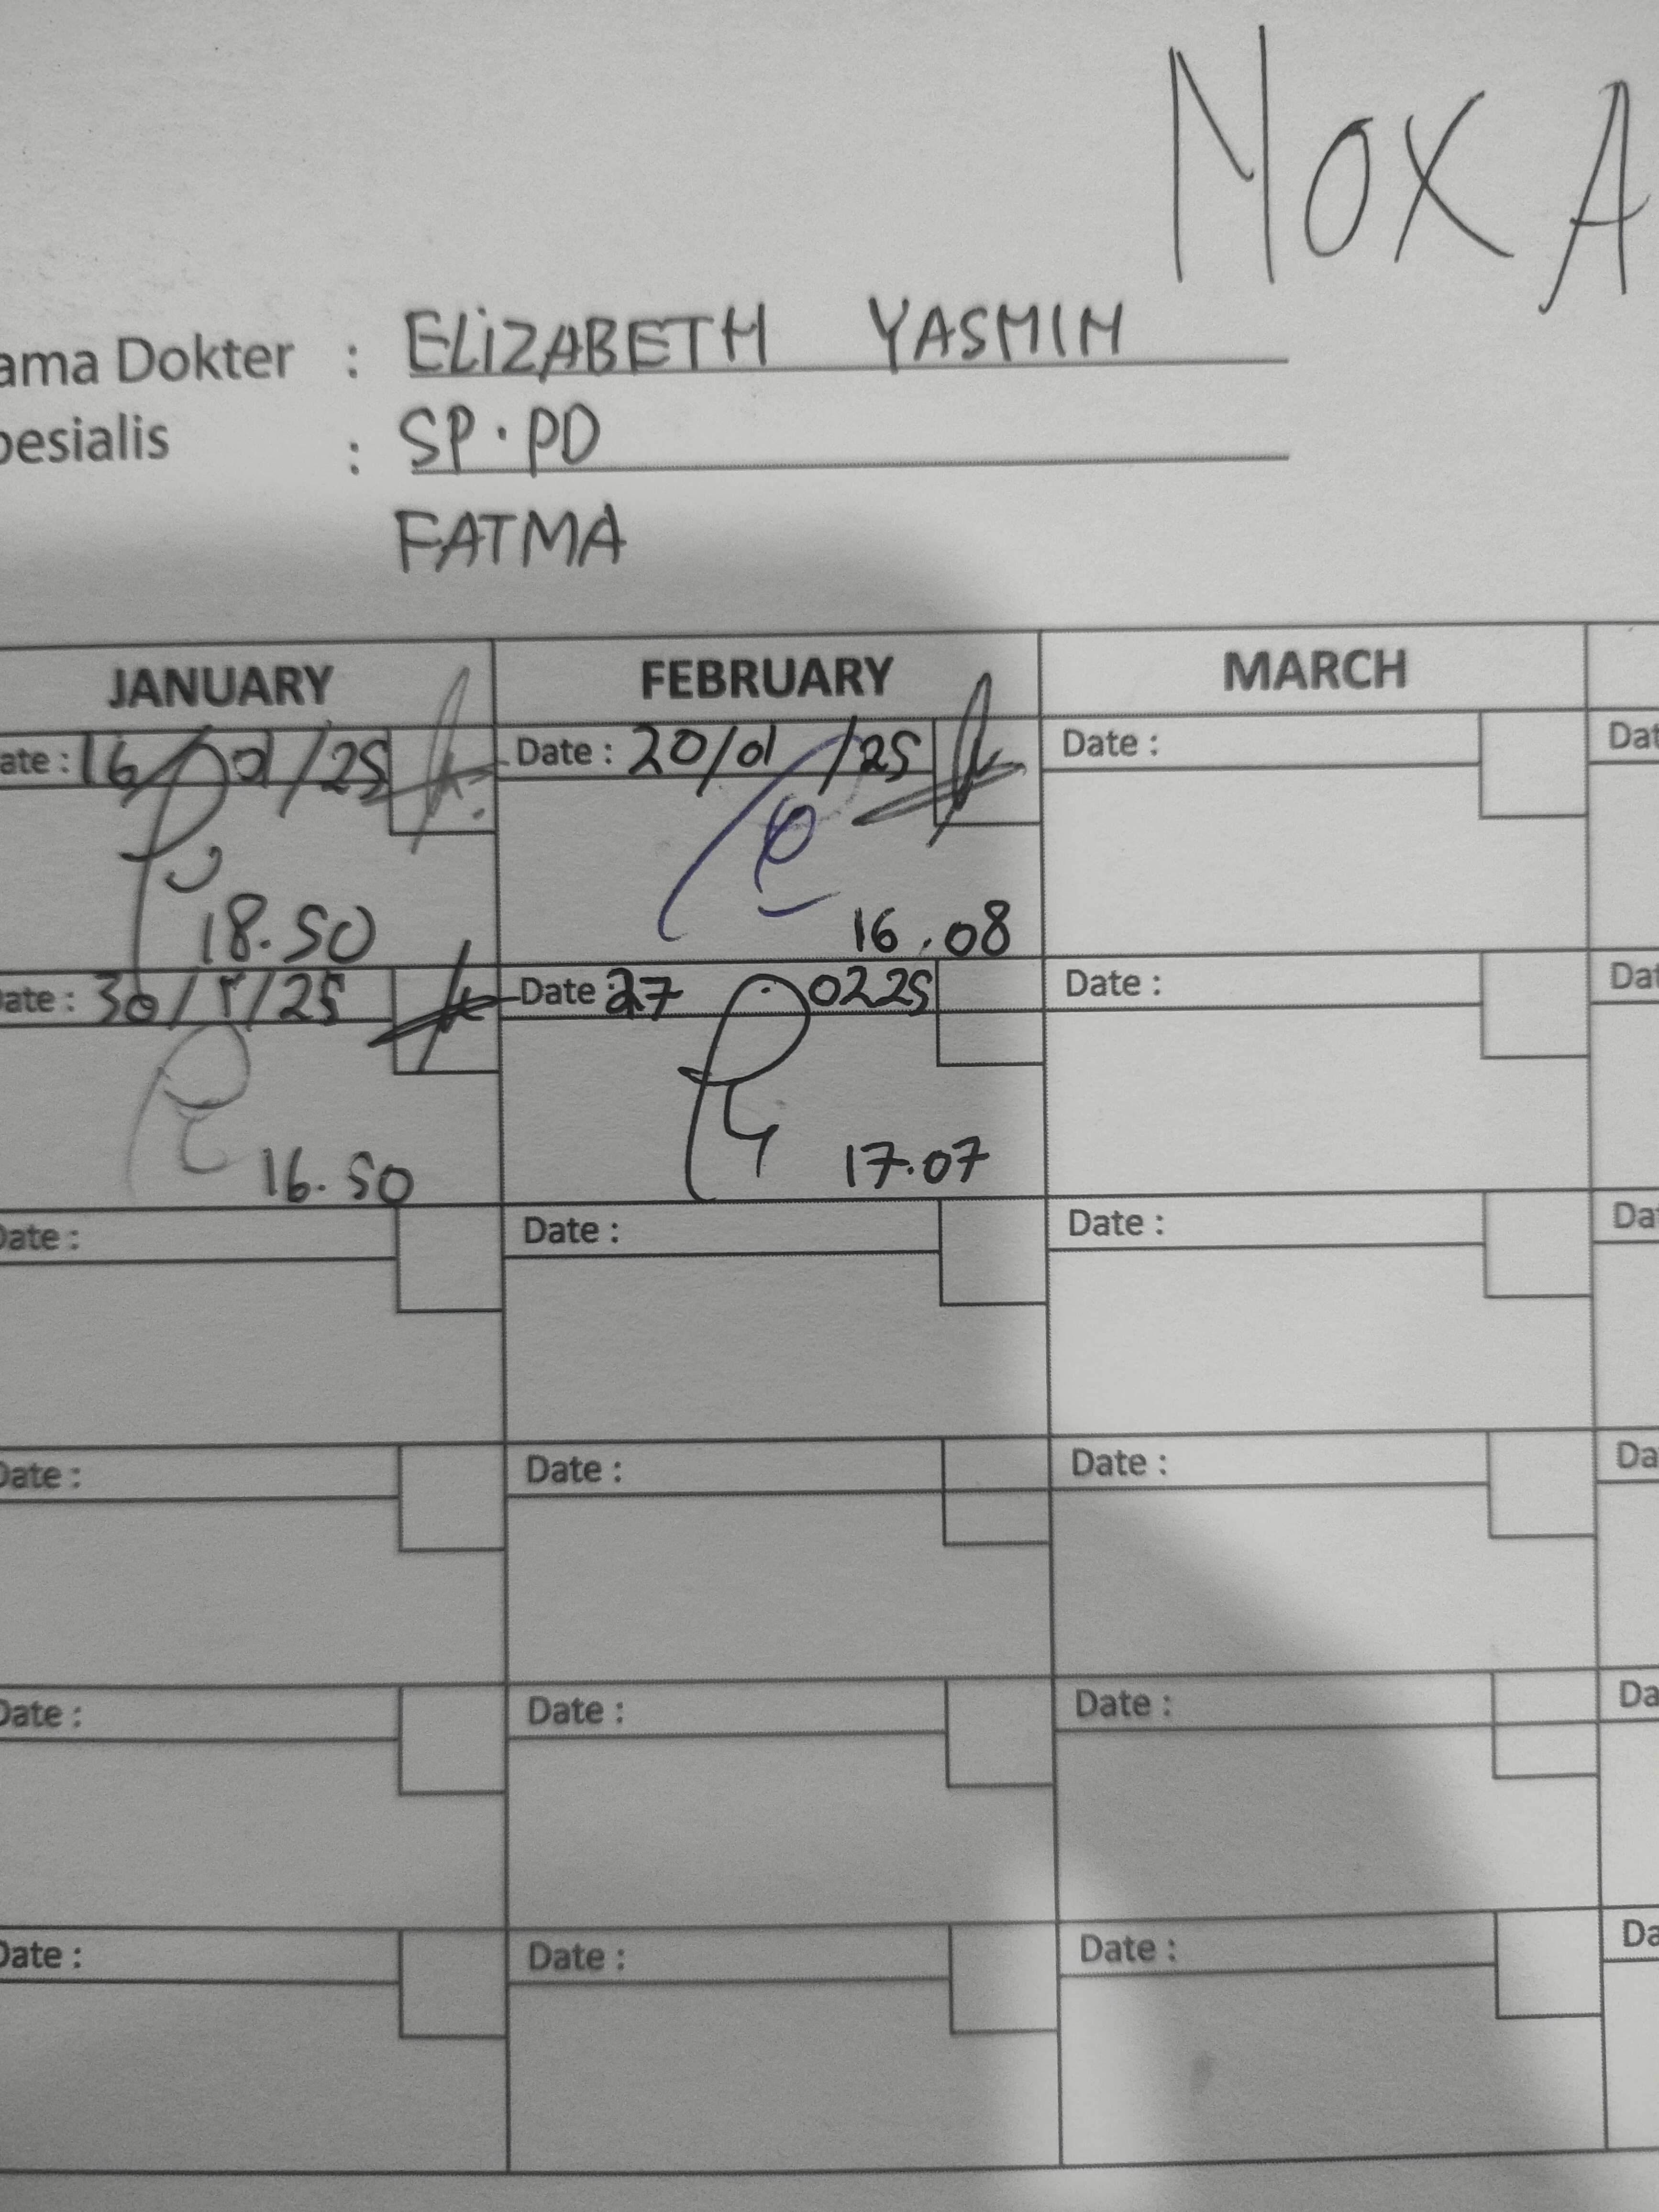 MOXA
ama Dokter : ELIZABETH YASMIN
pesialis : SP.PD
FATMA
JANUARY FEBRUARY MARCH
ate : 16/01/25 Date : 20/01/25 Date : Dat
18.50 16.08
Date : 30/1/25 Date : 27 0225 Date : Dat
16.50 17.07
Date : Date : Date : Da
Date : Date : Date : Da
Date : Date : Date : Da
Date : Date : Date : Da